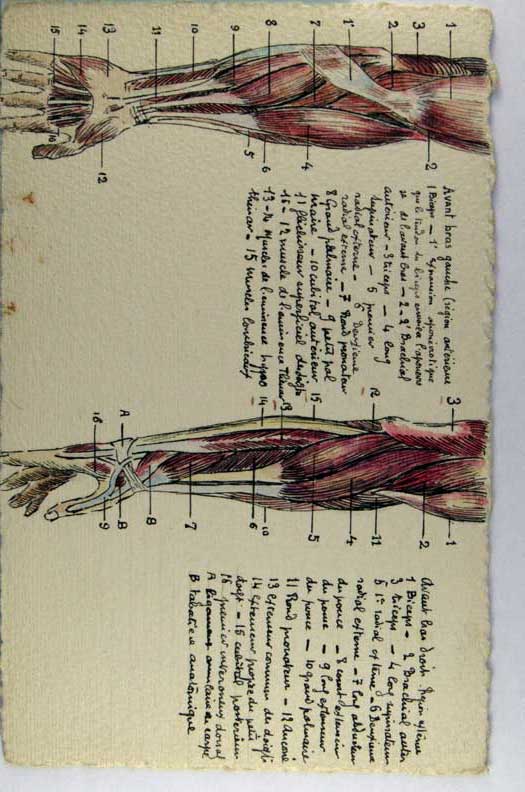 Avant bras gauche (région antérieure
1 Biceps — 1' Expansion aponévrotique
que le tendon du biceps envoie à l'aponévro
se de l'avant bras — 2-2' Brachial
antérieur — 3 triceps — 4 long
supinateur — 5 premier
radial externe — 6 Deuxième
radial externe — 7 Rond pronateur
8 Grand palmaire — 9 petit pal
maire — 10 cubital antérieur
11 fléchisseur superficiel des doigts
16 - 12 muscle de l'eminence Thénar
13 - 14 Muscles de l'eminence hypo
thénar — 15 muscles lombricaux
Avant bras droit Region externe
1 Biceps - 2 Brachial anter
3 triceps - 4 long supinateur
5 1er radial externe - 6 Deuxieme
radial externe - 7 long abducteur
du pouce - 8 court extenseur
du pouce - 9 long extenseur
du pouce - 10 grand palmaire
11 Rond pronateur - 12 Anconé
13 extenseur commun des doigts
14 Extenseur propre du petit
doigt - 15 cubital posterieur
16 premier interosseux dorsal
A ligament annulaire du carpe
B tabatiere anatomique
15 14 13 11 10 9 8 7 1' 2 3 1
16 12 5 6 4 2
16 A 13 14 15 12 3
9 B 8 7 6 10 5 4 11 2 1